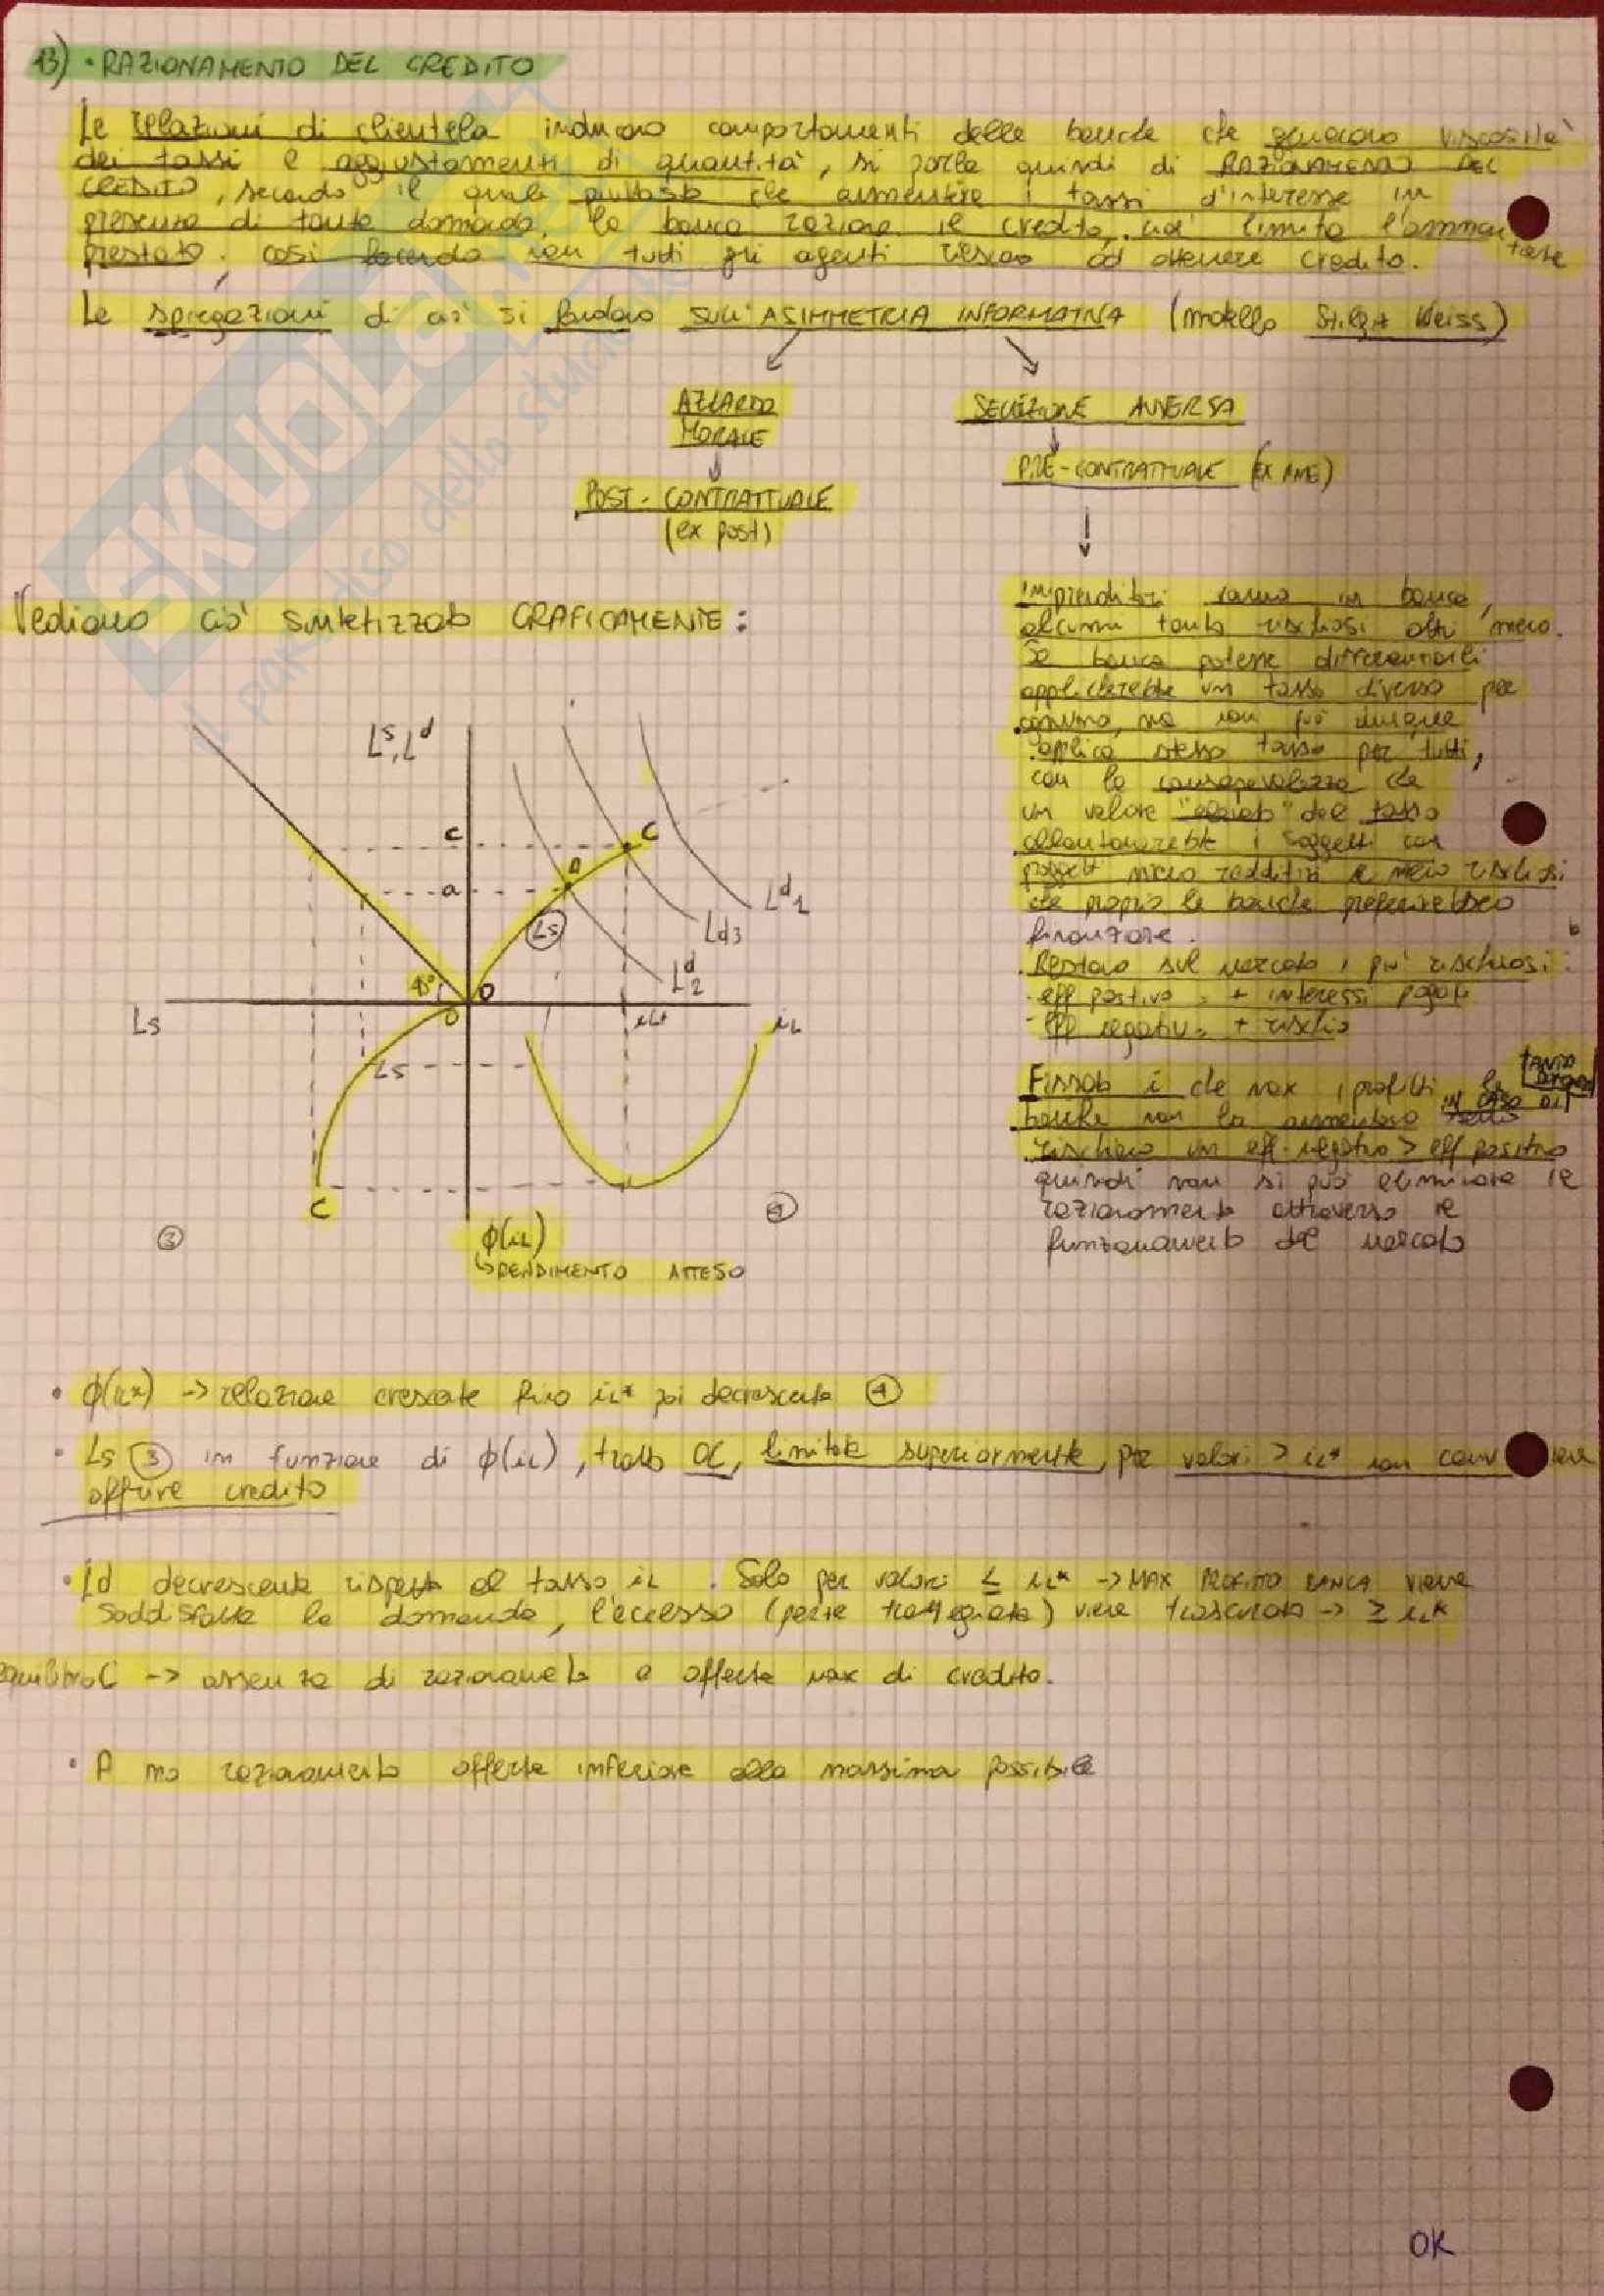 13) • RAZIONAMENTO DEL CREDITO
Le relazioni di clientela inducono comportamenti delle banche che generano viscosità
dei tassi e aggiustamenti di quantità, si parla quindi di RAZIONAMENTO DEL
CREDITO, secondo il quale piuttosto che aumentare i tassi d'interesse in
presenza di tanta domanda, la banca raziona il credito, cioè limita l'ammontare
prestato, così facendo non tutti gli agenti riescono ad ottenere credito.
Le spiegazioni di ciò si fondano SULL'ASIMMETRIA INFORMATIVA (modello Stilgt Weiss)
AZZARDO
MORALE
SELEZIONE AVVERSA
PRE-CONTRATTUALE (EX ANTE)
POST-CONTRATTUALE
(ex post)
Vediamo ciò sintetizzato GRAFICAMENTE:
Imprenditori vanno in banca,
alcuni tanto rischiosi altri meno.
Se banca potesse differenziarli
applicherebbe un tasso diverso per
ognuno, ma non può dunque
applica stesso tasso per tutti,
con la consapevolezza che
un valore "elevato" del tasso
allontanerebbe i soggetti con
progetti meno redditizi e meno rischiosi
che proprio le banche preferirebbero
finanziare.
Restano sul mercato i più rischiosi:
- eff positivo = + interessi pagati
- eff negativo = + rischio
Fissato i che max i profitti le
banche non lo aumentano IN CASO DI TANTA
rischiano un eff. negativo > eff positivo
quindi non si può eliminare il
razionamento attraverso il
funzionamento del mercato
Ls, Ld
C
C
a
A
Ls
Ld1
Ld3
Ld2
45°
O
O
Ls
iL*
iL
Ls
C
3
φ(iL)
RENDIMENTO ATTESO
• φ(iL*) → relazione crescente fino iL* poi decrescente 4
• Ls 3 in funzione di φ(iL), tratto OC, limitata superiormente, per valori > iL* non conviene
offrire credito
• Ld decrescente rispetto al tasso iL. Solo per valori ≤ iL* → MAX PROFITTO BANCA viene
soddisfatta la domanda, l'eccesso (parte tratteggiata) viene trascurata → ≥ iL*
equilibrio C → assenza di razionamento e offerta max di credito.
• A no razionamento offerta inferiore alla massima possibile
OK
SKUOLA.NET
il paradiso dello studente